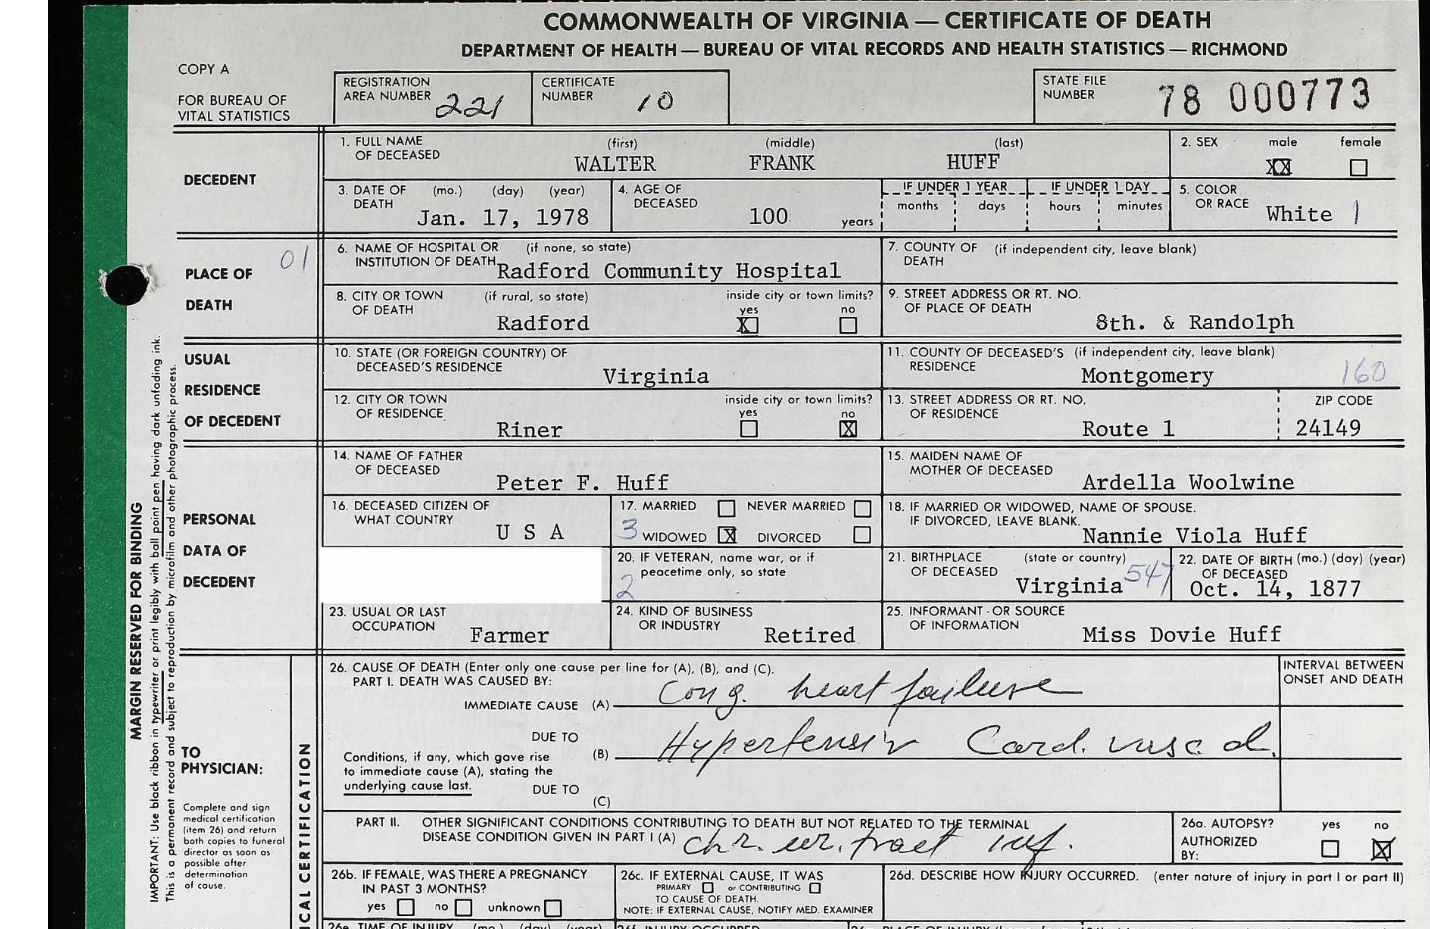 COMMONWEALTH OF VIRGINIA — CERTIFICATE OF DEATH
DEPARTMENT OF HEALTH — BUREAU OF VITAL RECORDS AND HEALTH STATISTICS — RICHMOND
COPY A
FOR BUREAU OF
VITAL STATISTICS
REGISTRATION
AREA NUMBER 221
CERTIFICATE
NUMBER 10
STATE FILE
NUMBER 78 000773
DECEDENT
1. FULL NAME (first) (middle) (last)
OF DECEASED WALTER FRANK HUFF
2. SEX male female
XX
3. DATE OF (mo.) (day) (year)
DEATH Jan. 17, 1978
4. AGE OF
DECEASED 100 years
IF UNDER 1 YEAR IF UNDER 1 DAY
months days hours minutes
5. COLOR
OR RACE White 1
PLACE OF
DEATH
01
6. NAME OF HOSPITAL OR (if none, so state)
INSTITUTION OF DEATH Radford Community Hospital
7. COUNTY OF (if independent city, leave blank)
DEATH
8. CITY OR TOWN (if rural, so state) inside city or town limits?
OF DEATH yes no
Radford X
9. STREET ADDRESS OR RT. NO.
OF PLACE OF DEATH
8th. & Randolph
USUAL
RESIDENCE
OF DECEDENT
10. STATE (OR FOREIGN COUNTRY) OF
DECEASED'S RESIDENCE Virginia
11. COUNTY OF DECEASED'S (if independent city, leave blank)
RESIDENCE Montgomery 160
12. CITY OR TOWN inside city or town limits?
OF RESIDENCE yes no
Riner X
13. STREET ADDRESS OR RT. NO. ZIP CODE
OF RESIDENCE
Route 1 24149
PERSONAL
DATA OF
DECEDENT
14. NAME OF FATHER
OF DECEASED Peter F. Huff
15. MAIDEN NAME OF
MOTHER OF DECEASED Ardella Woolwine
16. DECEASED CITIZEN OF
WHAT COUNTRY U S A
17. MARRIED NEVER MARRIED
3 WIDOWED X DIVORCED
18. IF MARRIED OR WIDOWED, NAME OF SPOUSE.
IF DIVORCED, LEAVE BLANK.
Nannie Viola Huff
20. IF VETERAN, name war, or if
peacetime only, so state
2
21. BIRTHPLACE (state or country)
OF DECEASED Virginia 547
22. DATE OF BIRTH (mo.) (day) (year)
OF DECEASED
Oct. 14, 1877
23. USUAL OR LAST
OCCUPATION Farmer
24. KIND OF BUSINESS
OR INDUSTRY Retired
25. INFORMANT - OR SOURCE
OF INFORMATION Miss Dovie Huff
MARGIN RESERVED FOR BINDING
IMPORTANT: Use black ribbon in typewriter or print legibly with ball point pen having dark unfading ink.
This is a permanent record and subject to reproduction by microfilm and other photographic process.
TO
PHYSICIAN:
Complete and sign
medical certification
(item 26) and return
both copies to funeral
director as soon as
possible after
determination
of cause.
ICAL CERTIFICATION
26. CAUSE OF DEATH (Enter only one cause per line for (A), (B), and (C).
PART I. DEATH WAS CAUSED BY:
IMMEDIATE CAUSE (A) Cong. heart failure
INTERVAL BETWEEN
ONSET AND DEATH
DUE TO
(B) Hypertensiv Card. vasc d.
Conditions, if any, which gave rise
to immediate cause (A), stating the
underlying cause last. DUE TO
(C)
PART II. OTHER SIGNIFICANT CONDITIONS CONTRIBUTING TO DEATH BUT NOT RELATED TO THE TERMINAL
DISEASE CONDITION GIVEN IN PART I (A) chr. ur. tract inf.
26a. AUTOPSY? yes no
AUTHORIZED
BY: X
26b. IF FEMALE, WAS THERE A PREGNANCY
IN PAST 3 MONTHS?
yes no unknown
26c. IF EXTERNAL CAUSE, IT WAS
PRIMARY or CONTRIBUTING
TO CAUSE OF DEATH.
NOTE: IF EXTERNAL CAUSE, NOTIFY MED. EXAMINER
26d. DESCRIBE HOW INJURY OCCURRED. (enter nature of injury in part I or part II)
26e. TIME OF INJURY (mo.) (day) (year)